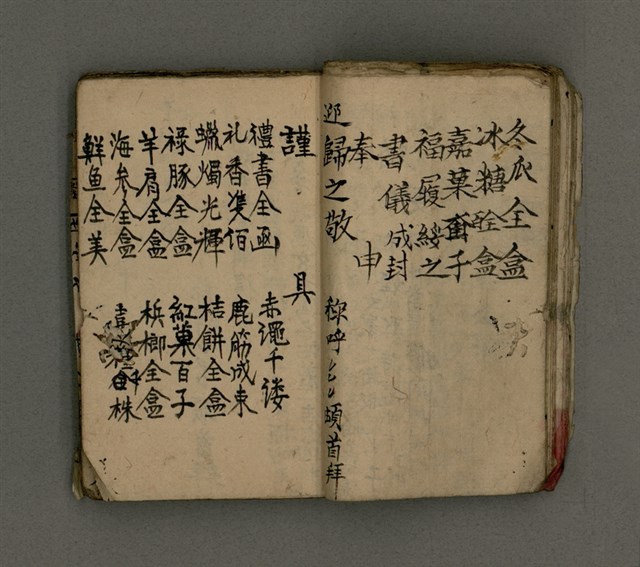 冬瓜全盒
冰糖全盒
嘉菓奮子
福履綏之
書儀成封
奉申
迎歸之敬 称呼 頓首拜
謹具
禮書全函 赤繩千縷
礼香雙佰 鹿筋成束
蠟燭光輝 桔餅全盒
祿豚全盒 紅菓百子
羊肩全盒 梹榔全盒
海参全盒 株
鮮魚全美